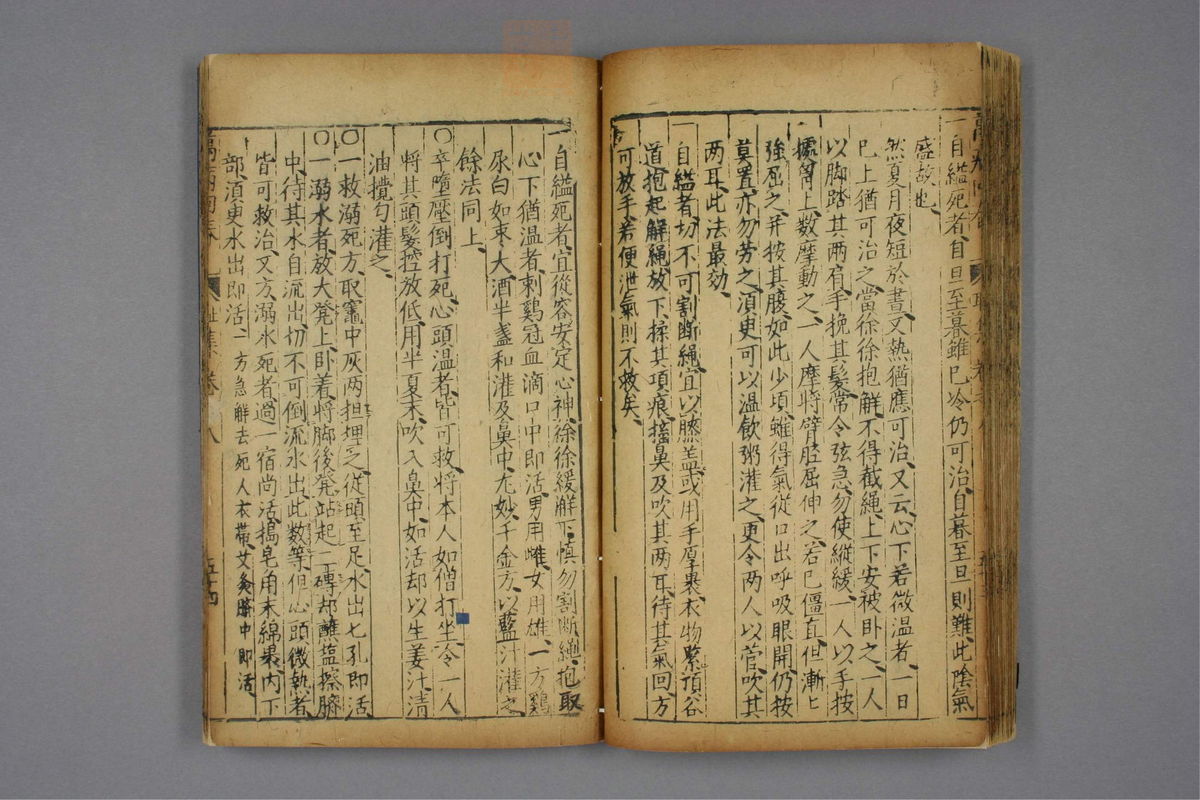 一自縊死者自旦至暮雖已冷仍可治自暮至旦則難此陰氣
盛故也
然夏月夜短於晝又熱猶應可治又云心下若微溫者一日
已上猶可治之當徐徐抱解不得截繩上下安被卧之一人
以脚踏其两肩手挽其髮常令弦急勿使縱緩一人以手按
據胷上数摩動之一人摩將臂脛屈伸之若已僵直但漸〻
強屈之并按其腹如此少頃雖得氣從口出呼吸眼開仍按
莫置亦勿劳之湏臾可以温飲粥灌之更令两人以管吹其
两耳此法最効
一自縊者切不可割断繩宜以膝盖或用手厚褁衣物緊頂谷
道抱起解繩放下揉其項痕搐鼻及吹其两耳待其氣回方
可放手若便泄氣則不救矣
一自縊死者宜從容安定心神徐徐緩解下慎勿割断繩抱取
心下猶温者刺鷄冠血滴口中即活男用雌女用雄一方鷄
尿白如枣大酒半盞和灌及鼻中尤妙千金方以藍汁灌之
餘法同上
〇卒墮壓倒打死心頭温者皆可救將本人如僧打坐令一人
將其頭髮控放低用半夏末吹入鼻中如活却以生姜汁清
油攪匀灌之
〇一救溺死方取竈中灰两担埋之從頭至足水出七孔即活
〇一溺水者放大凳上卧着將脚後凳站起二磚却蘸塩擦臍
中待其水自流出切不可倒流水出此数等但心頭微熱者
皆可救治又方溺水死者過一宿尚活搗皂角末綿裹内下
部湏臾水出即活一方急解去死人衣帶艾灸臍中即活
萬病回春
五十四